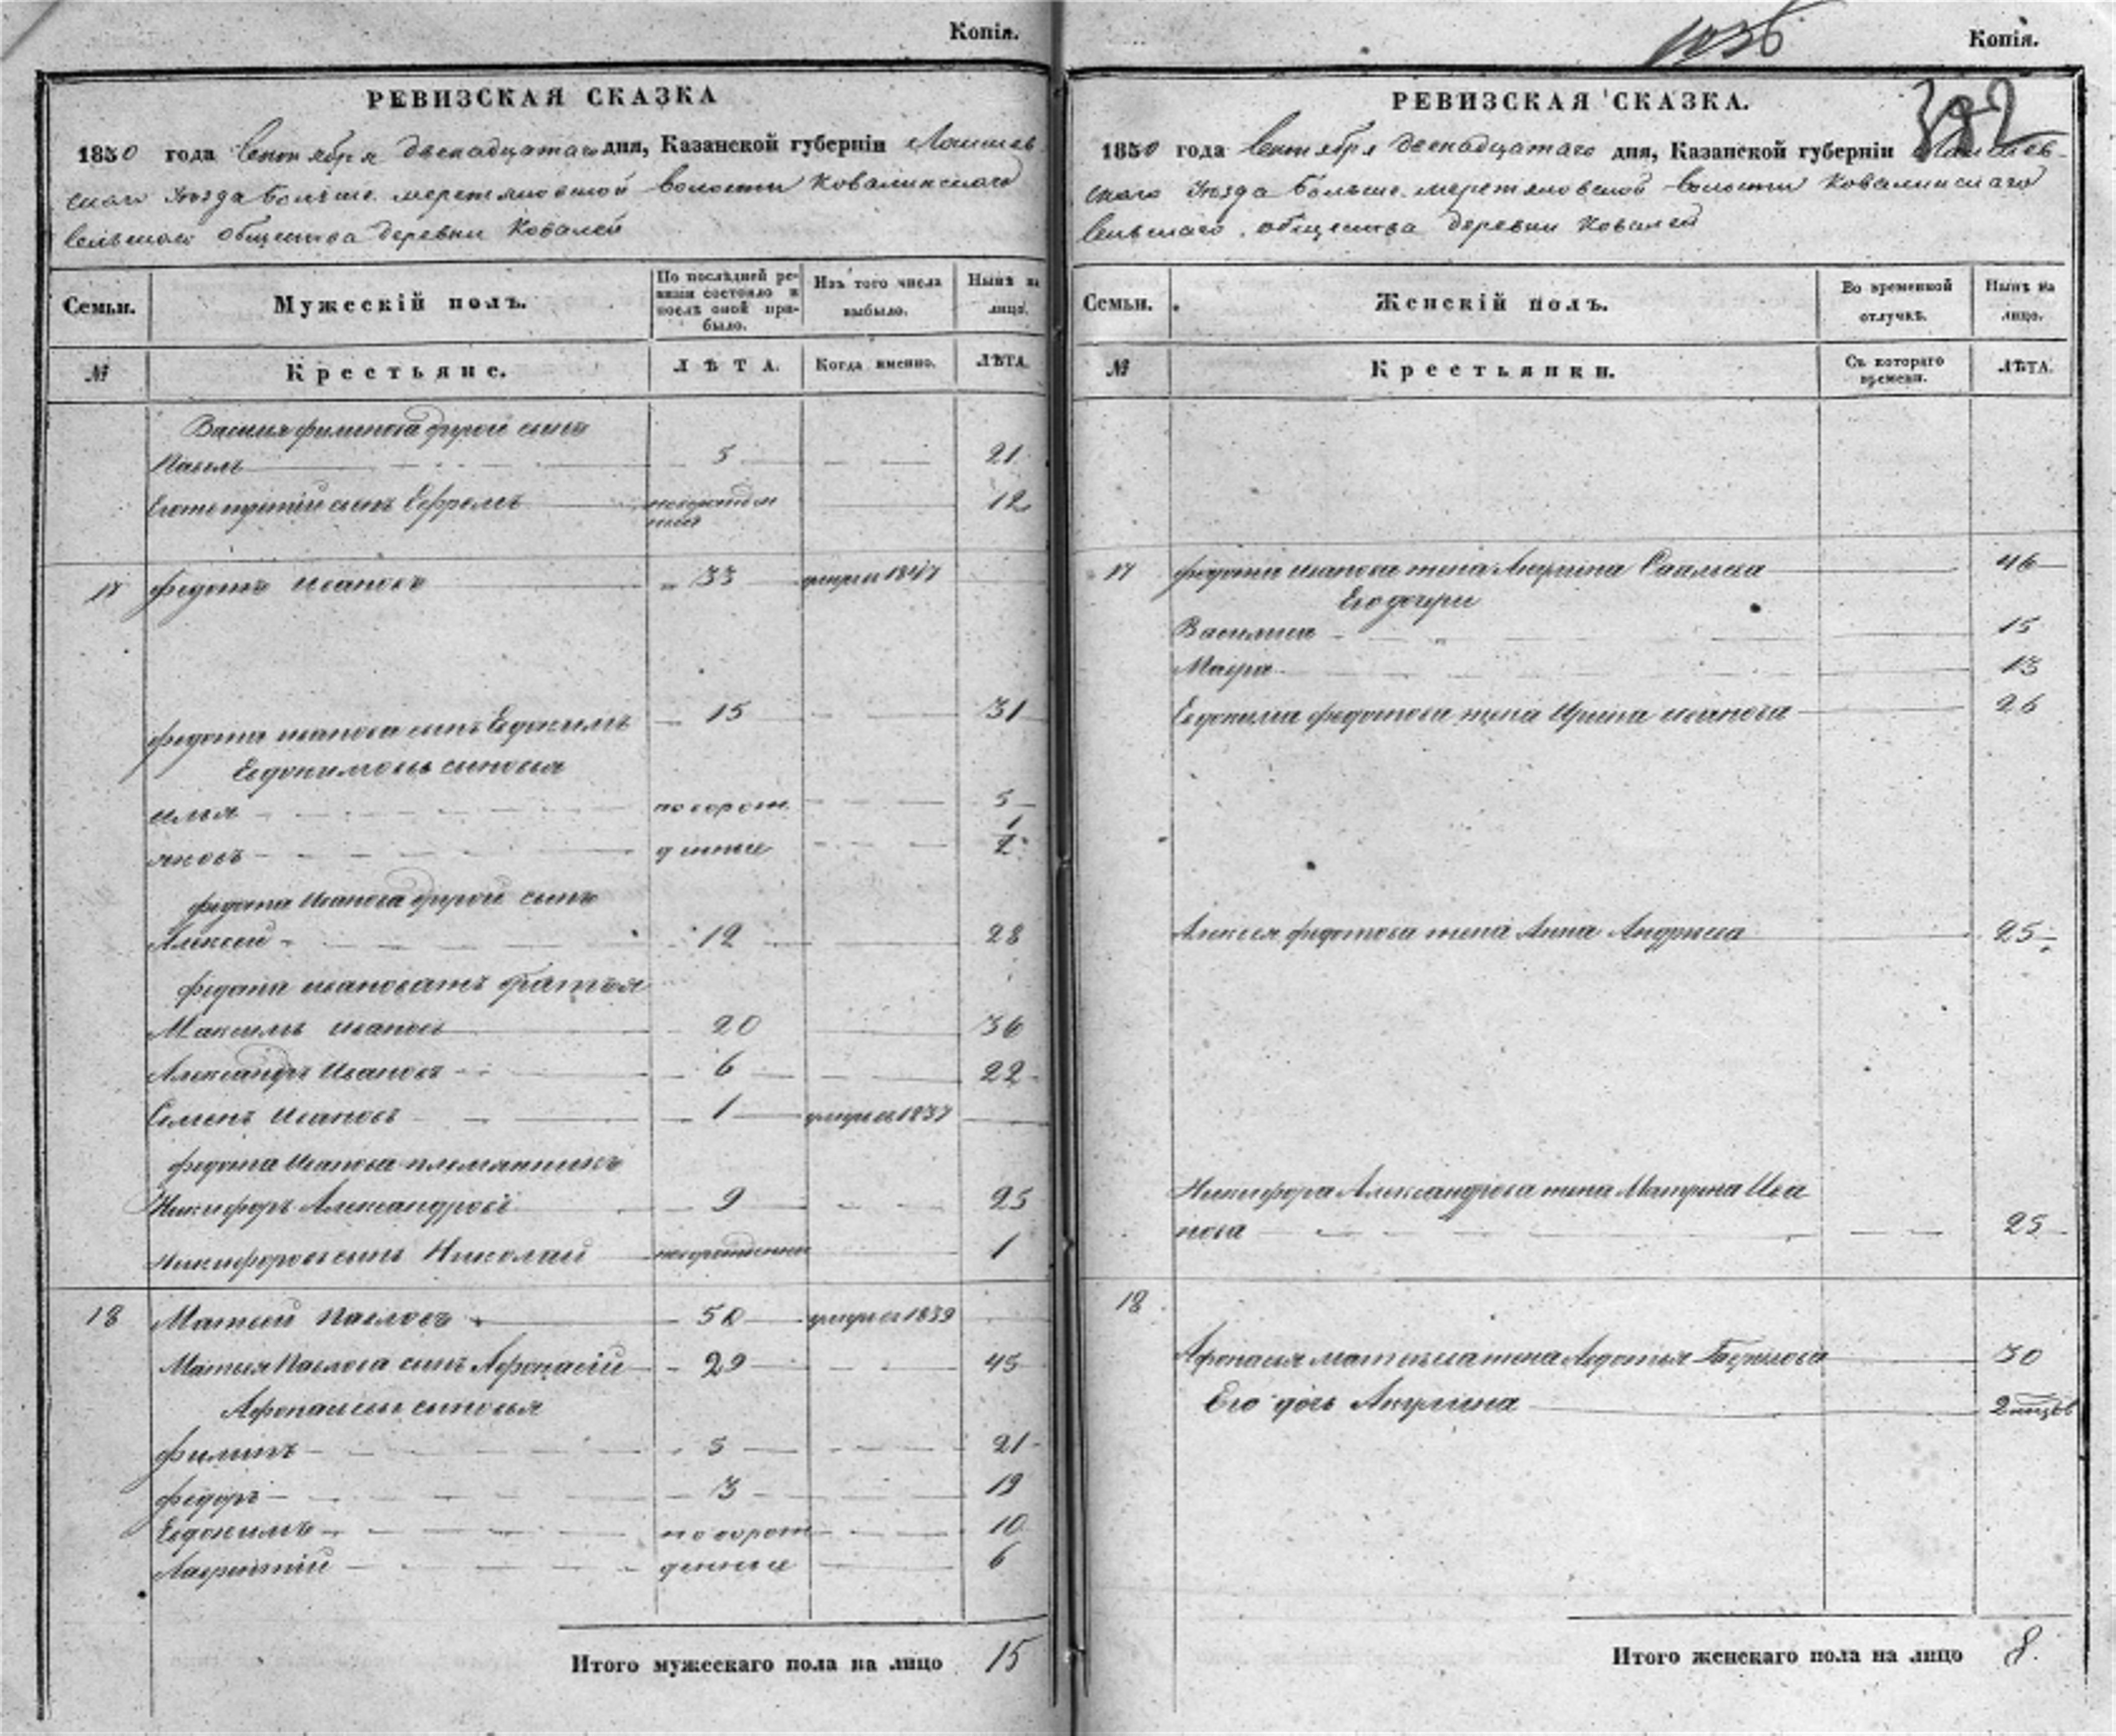 Копія.
РЕВИЗСКАЯ СКАЗКА
1850 года Сентября двенадцатаго дня, Казанской губерніи Лаишев
скаго Уезда Больше меретяковской волости Ковалинскаго
сельскаго общества деревни Ковалей
Семьи.
Мужескій полъ.
По послѣдней ре-
визіи состояло и
послѣ оной при-
было.
Изъ того числа
выбыло.
Нынѣ на
лицо.
№
Крестьяне.
ЛѢТА.
Когда именно.
ЛѢТА.
Василья филипова другой сынъ
Павелъ 5 21
Его же третий сынъ Ефремъ новорожден
ный 12
17 федотъ Ивановъ 33 умеръ 1847
федота иванова сынъ Евдокимъ 15 31
Евдокимовы сыновья
илья новорож 5
яковъ денные 1/2
федота Иванова другой сынъ
Алексей 12 28
федота ивановатъ братья
Максимъ ивановъ 20 36
Александръ Ивановъ 6 22
Семенъ Ивановъ 1 умеръ 1837
федота Иванова племянникъ
Никифоръ Александровъ 9 25
Никифоровъ сынъ Николай новорожденны 1
18 Матвей Павловъ 50 умеръ 1839
Матвея Павлова сынъ Афонасій 29 45
Афонасьевы сыновья
филипъ 5 21
федоръ 3 19
Евдокимъ новорож 10
Лаврентий денные 6
Итого мужескаго пола на лицо 15
1036
Копія.
382
РЕВИЗСКАЯ СКАЗКА.
1850 года Сентября двенадцатаго дня, Казанской губерніи Лаишев-
скаго Уезда Больше меретяковской волости Ковалинскаго
сельскаго общества деревни Ковалей
Семьи.
Женскій полъ.
Во временной
отлучкѣ.
Нынѣ на
лицо.
№
Крестьянки.
Съ котораго
времени.
ЛѢТА.
17 федота иванова жена Акулина Савельева 46
Его дочери
Василиса 15
Мавра 13
Евдокима федотова жена Ирина иванова 26
Алексея федотова жена Анна Андреева 25
Никифора Александрова жена Матрена Ива
нова 25
18
Афонасья матвеева жена Авдотья Гаврилова 30
Его дочь Акулина 2 месяцов
Итого женскаго пола на лицо 8.